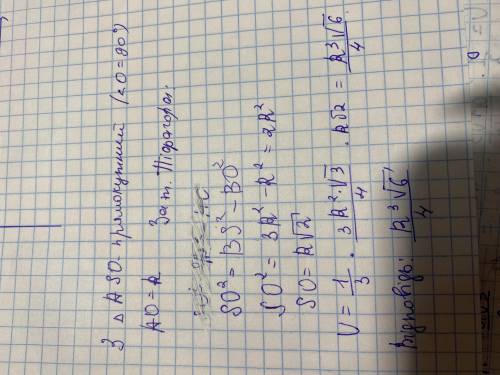 З △ ASO - прямокутний (∠O = 90°)
AO = R За т. Піфагора:
SO² = BS² - BO²
SO² = 3R² - R² = 2R²
SO = R√2
V = 1/3 · 3R²·√3/4 · R√2 = R³√6/4
Відповідь: R³√6/4